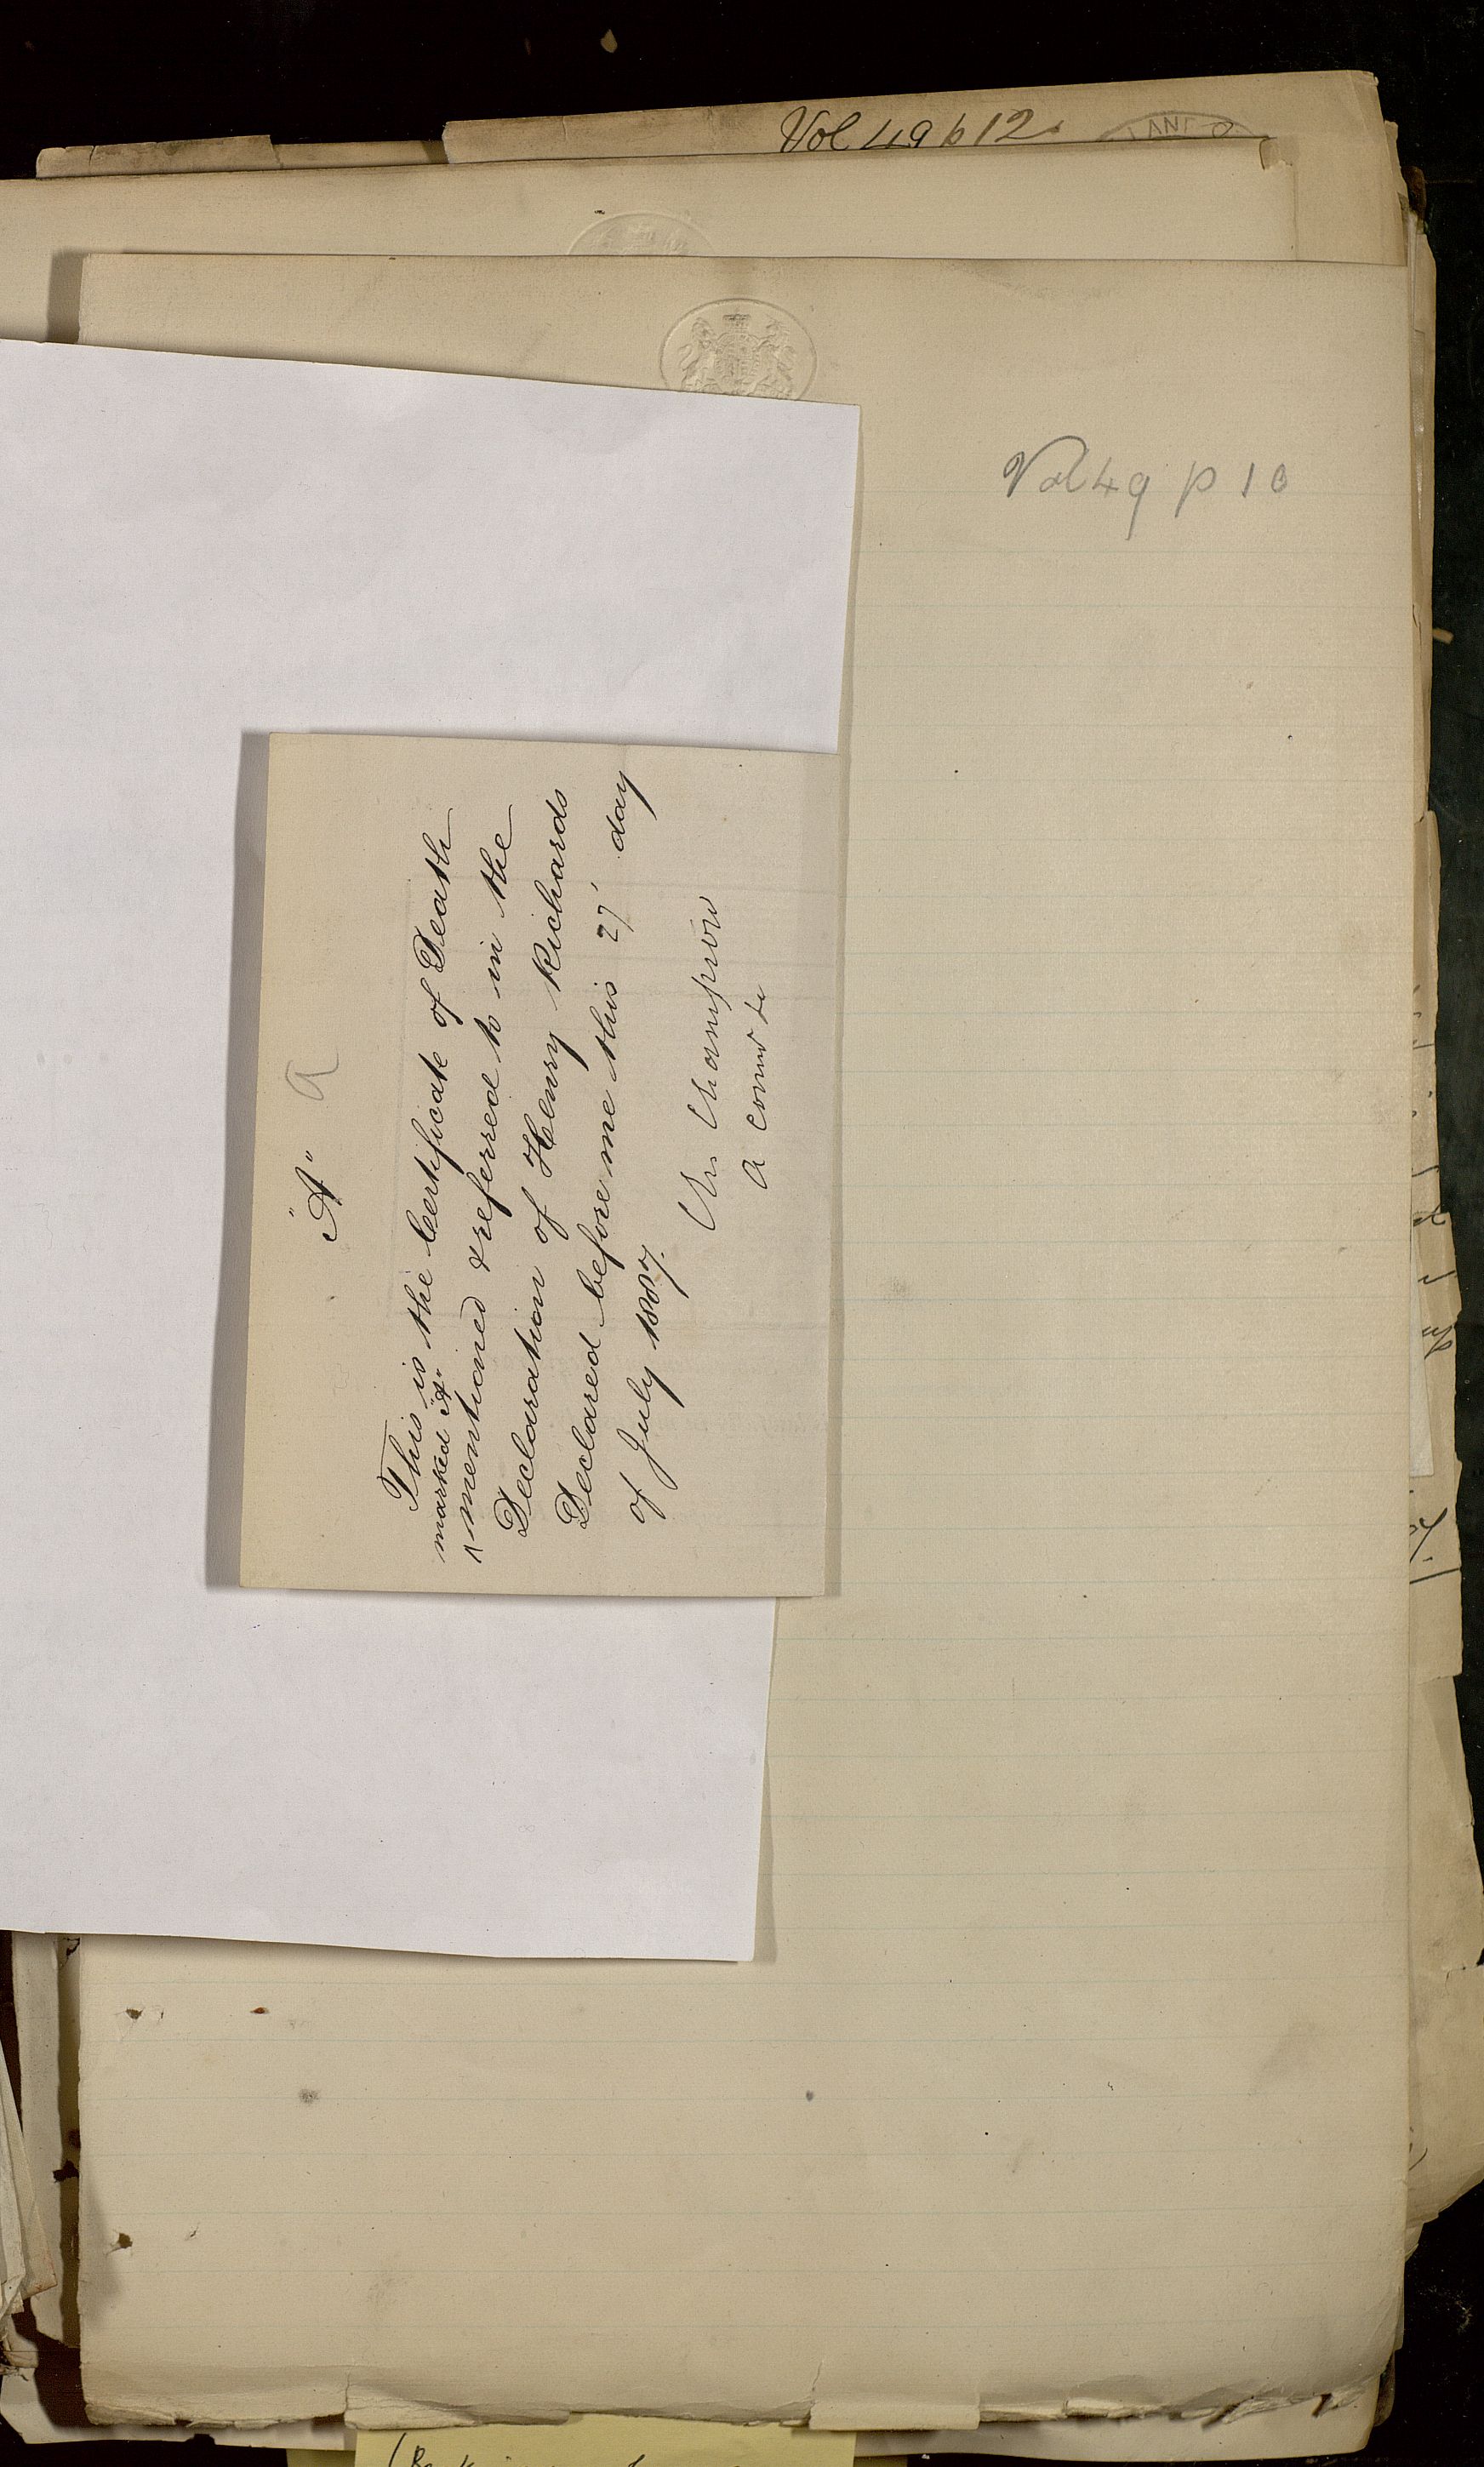 Vol 49 p 12
Vol 49 p 10
"A" a
This is the Certificate of Death
marked "A"
^ mentioned & referred to in the
Declaration of Henry Richards
Declared before me this 27' day
of July 1887.
Champion
A Comr